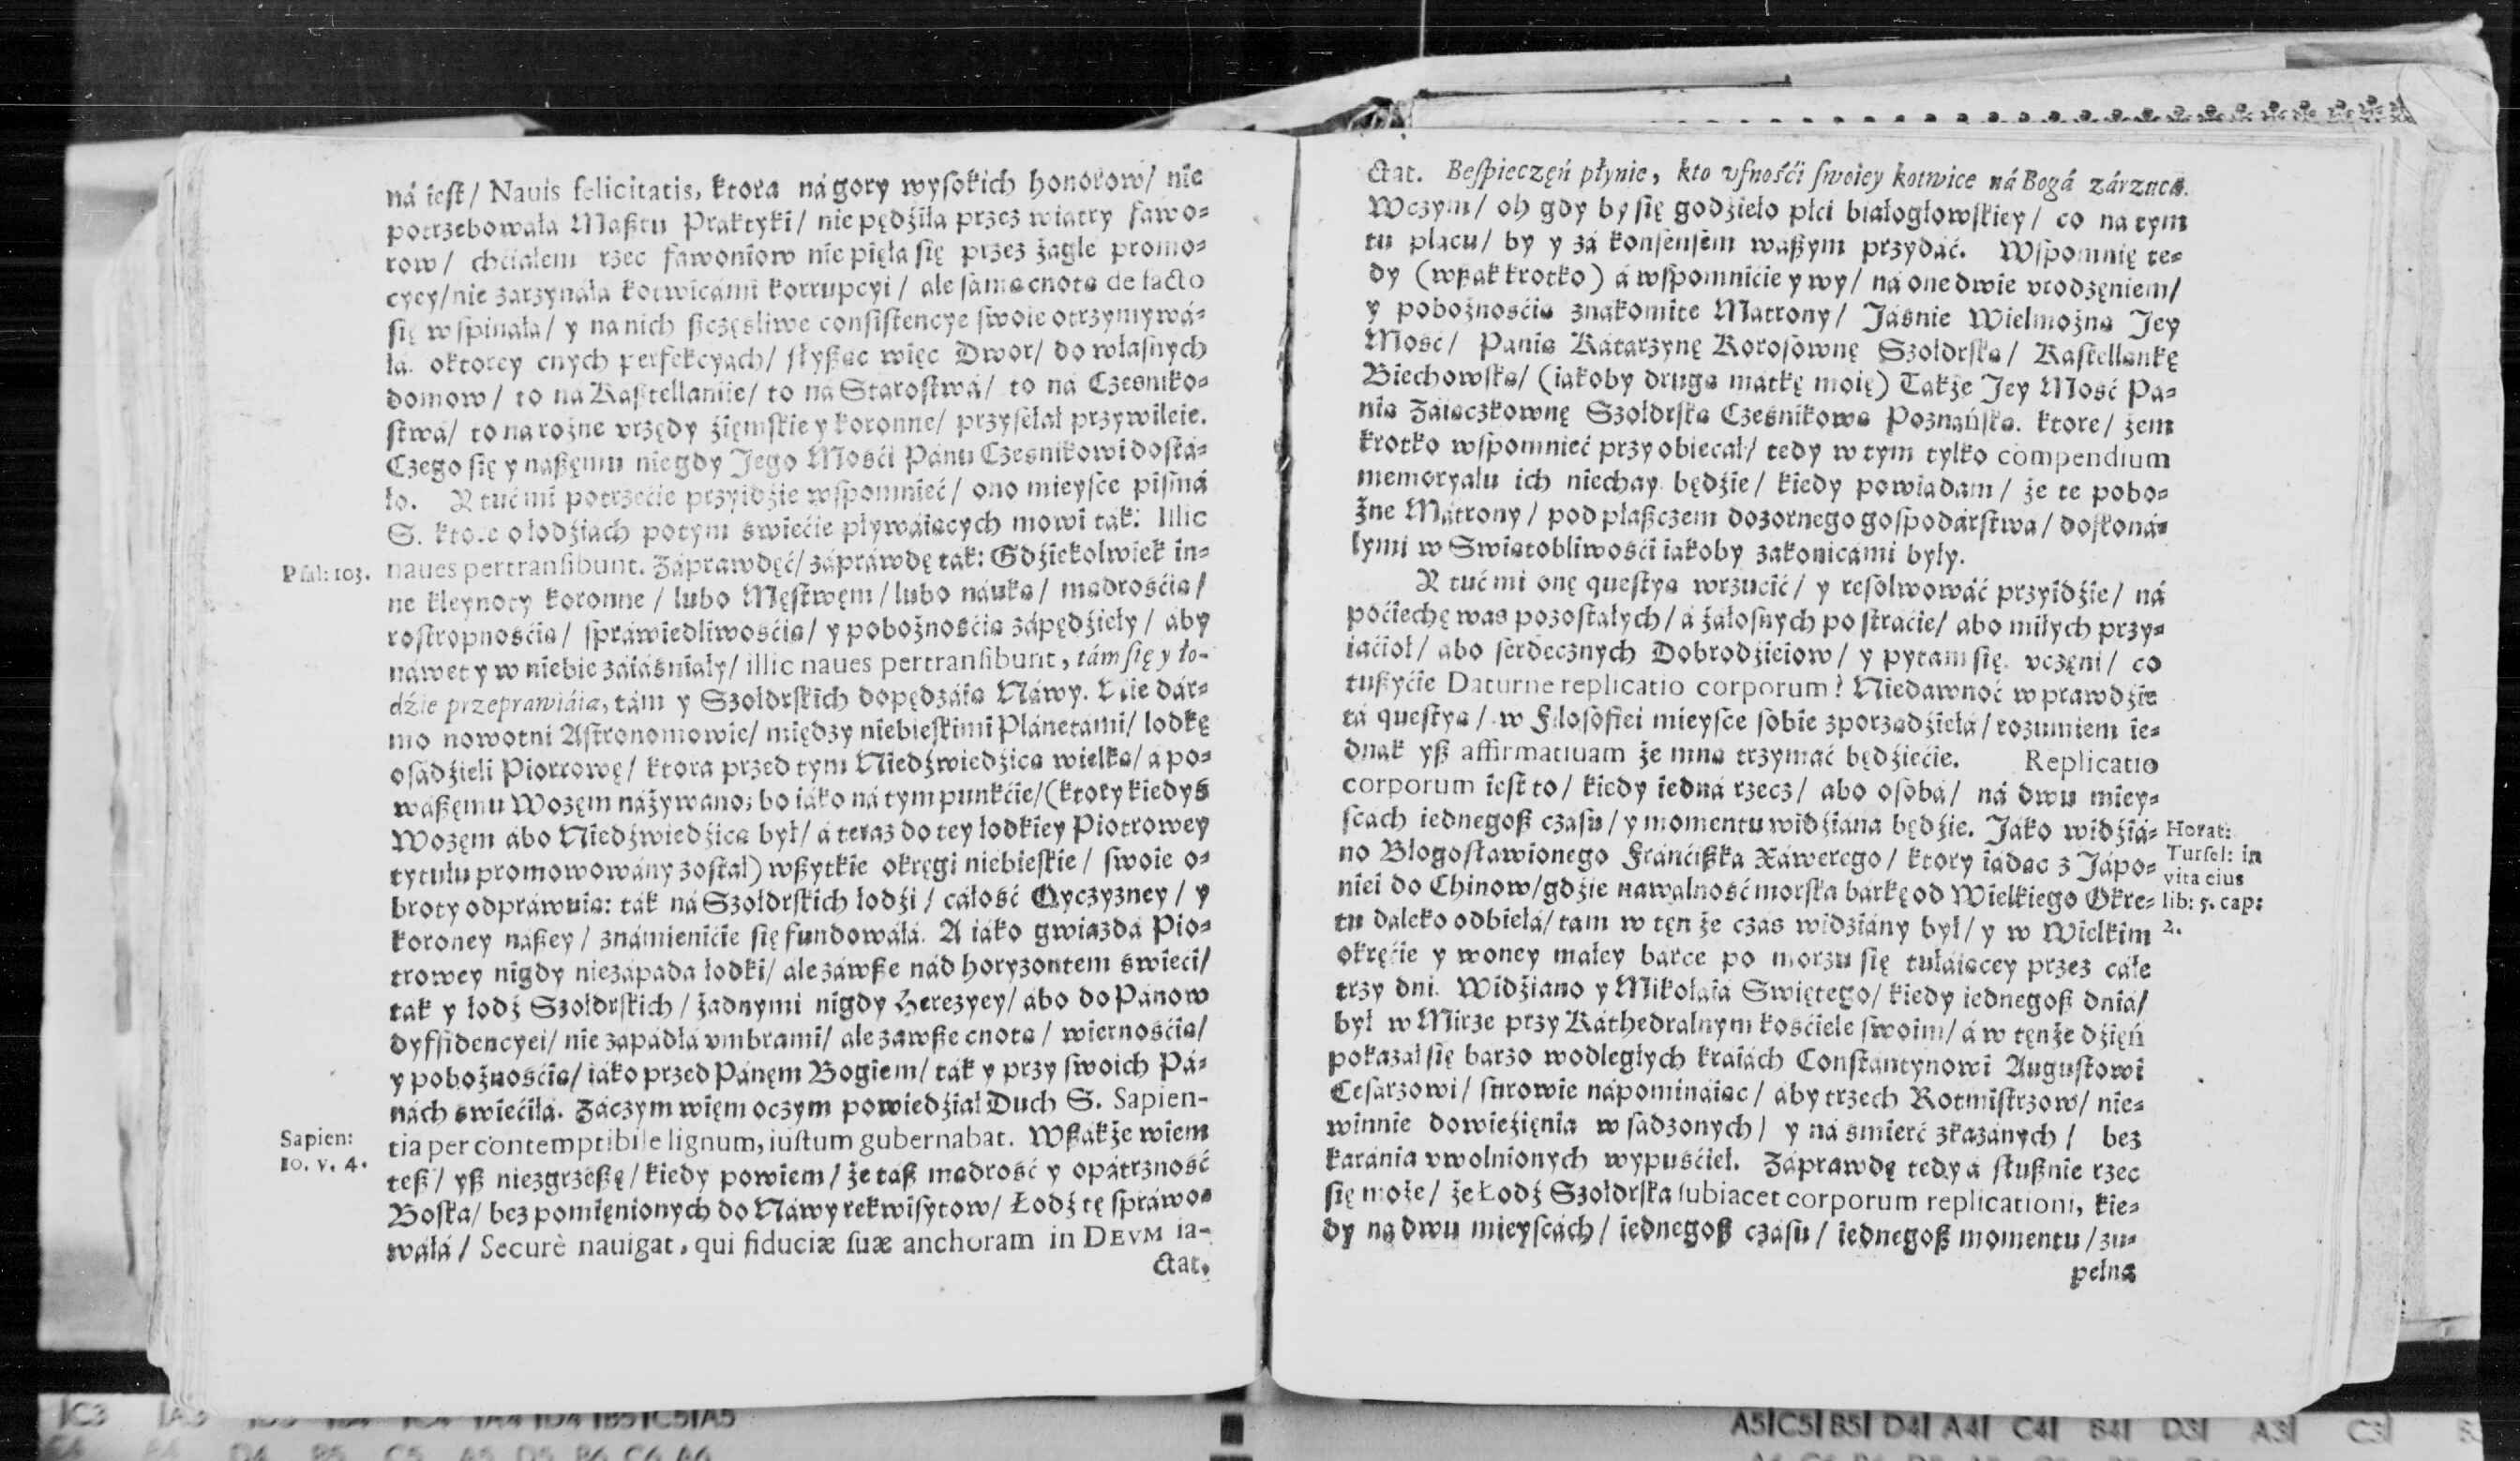 ná iest/ Nauis felicitatis, ktora ná gory wysokich honorow/ nie
potrzebowała Masztu Praktyki/ nie pędźiła przez wiatry fawo-
row/ chćiałem rzec fawoniow nie pięła się przez żagle promo-
cyey/ nie zarzynała kotwicámi korrupcyi/ ale sámą cnotą de facto
się wspinała/ y na nich szczęsliwe consistencye swoie otrzymywá-
ła. o ktorey cnych perfekcyach/ słysząc więc Dwor/ do własnych
domow/ to na Kasztellaniie/ to ná Starostwá/ to ná Czesniko-
stwá/ to na rożne vrzędy źięmskie y koronne/ przysełał przywileie.
Czego się y nászęmu niegdy Jego Mośći Pánu Czesnikowi dostá-
ło. A tuć mi potrzećie przyidźie wspomnieć/ ono mieysce pismá
S. ktore o łodźiach po tym swiećie pływáiących mowi ták: Illic
Psal: 103. naues pertransibunt. Záprawdęć/ záprawdę tak: Gdźiekolwiek in-
ne kleynoty koronne/ lubo Męstwęm/ lubo náuką/ mądrośćią/
rostropnośćią/ spráwiedliwośćią/ y pobożnośćią zápędźieły/ aby
náwet y w niebie záiáśniały/ illic naues pertransibunt, tám się y ło-
dźie przeprawiáią, tám y Szołdrskich dopędzáią Náwy. Nie dár-
mo nowotni Astronomowie/ między niebieskimi Plánetámi/ lodkę
osádźieli Piotrowę/ ktora przed tym Niedźwiedźicą wielką/ a po-
wászęmu Wozęm názywano; bo iáko ná tym punkćie/ (ktory kiedyś
Wozęm ábo Niedźwiedźicą był/ á teraz do tey łodkiey Piotrowey
tytułu promowowány został) wszytkie okręgi niebieskie/ swoie o-
broty odpráwuią: ták ná Szołdrskich łodźi/ cáłość Oyczyzney/ y
koroney naszey/ známienićie się fundowáłá. A iáko gwiazdá Pio-
trowey nigdy niezápada łodki/ ale záwsze nád horyzontem świeći/
tak y łodź Szołdrskich/ żadnymi nigdy Herezyey/ ábo do Pánow
dyfsidencyei/ nie zápádłá vmbrami/ ale zawsze cnotą/ wiernośćią/
y pobożnośćią/ iáko przed Pánęm Bogiem/ ták y przy swoich Pá-
nách świećiłá. Záczym więm o czym powiedźiał Duch S. Sapien-
Sapien: 10. v. 4. tia per contemptibile lignum, iustum gubernabat. Wszákże wiem
tesz/ ysz niezgrzeszę/ kiedy powiem/ że tasz mądrość y opátrzność
Boska/ bez pomięnionych do Náwy rekwisytow/ Łodź tę spráwo-
wáłá/ Securè nauigat, qui fiduciæ suæ anchoram in DEVM ia-
ctat.
ctat. Bespieczęń płynie, kto vfnośći swoiey kotwice ná Bogá zárzuca.
W czym/ oh gdy by się godźieło płci białogłowskiey/ co na tym
tu placu/ by y zá konsensem waszym przydáć. Wspomnię te-
dy (wszak krotko) á wspomnićie y wy/ ná one dwie vrodzęniem/
y pobożnośćią znákomite Matrony/ Jáśnie Wielmożną Jey
Mość/ Panią Kátarzynę Korosownę Szołdrską/ Kástellankę
Biechowską/ (iakoby drugą mátkę moię) Także Jey Mość Pá-
nią Záiączkownę Szołdrską Cześnikową Poznáńską. ktore/ żem
krotko wspomnieć przyobiecał/ tedy w tym tylko compendium
memoryału ich niechay będźie/ kiedy powiadam/ że te pobo-
żne Mátrony/ pod płaszczem dozornego gospodárstwa/ doskoná-
łymi w Swiątobliwośći iakoby zakonicámi były.
A tuć mi onę questyą wrzucić/ y resolwowáć przyidźie/ ná
poćiechę was pozostałych/ á żáłosnych po stráćie/ abo miłych przy-
iaćioł/ abo serdecznych Dobrodźieiow/ y pytam się vczęni/ co
tuszyćie Daturne replicatio corporum? Niedawnoć wprawdźie
tá questya/ w Filosofiei mieysce sobie zporządźiełá/ rozumiem ie-
dnak ysz affirmatiuam że mną trzymáć będźiećie. Replicatio
corporum iest to/ kiedy iedná rzecz/ abo osobá/ ná dwu miey-
scach iednegosz czasu/ y momentu widźiána będźie. Jáko widźiá-
no Błogosławionego Fránćiszka Xáwerego/ ktory iádąc z Jápo-
niei do Chinow/ gdźie nawalność morska bárkę od Wielkiego Okrę-
tu dáleko odbiełá/ tam w tęn że czás widziány był/ y w Wielkim
okręćie y w oney máłey bárce po morzu się tułáiącey przez cáłe
trzy dni. Widźiano y Mikołaiá Swiętego/ kiedy iednegosz dniá/
był w Mirze przy Káthedralnym kośćiele swoim/ á w tęnże dźięń
pokazał się bárzo w odległych kráiách Constántynowi Augustowi
Cesárzowi/ surowie nápomináiąc/ aby trzech Rotmistrzow/ nie-
winnie do wieźięnia wsadzonych/ y ná śmierć zkazánych/ bez
karánia vwolnionych wypuśćieł. Záprawdę tedy á słusznie rzec
się może/ że Łodź Szołdrska subiacet corporum replicationi, kie-
dy ná dwu mieyscách/ iednegosz czásu/ iednegosz momentu/ zu-
pełna
Horat:
Tursel: in
vita eius
lib: 5. cap:
2.